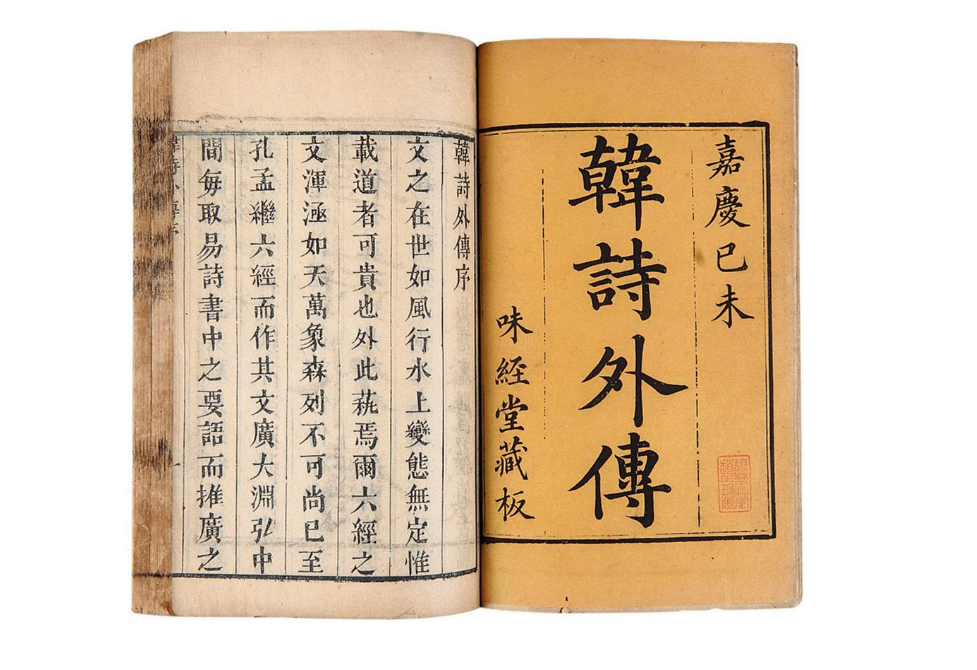 嘉慶己未
韓詩外傳
味經堂藏板
韓詩外傳序
文之在世如風行水上變態無定惟
載道者可貴也外此蓺焉爾六經之
文渾涵如天萬象森列不可尚已至
孔孟繼六經而作其文廣大淵弘中
間每取易詩書中之要語而推廣之